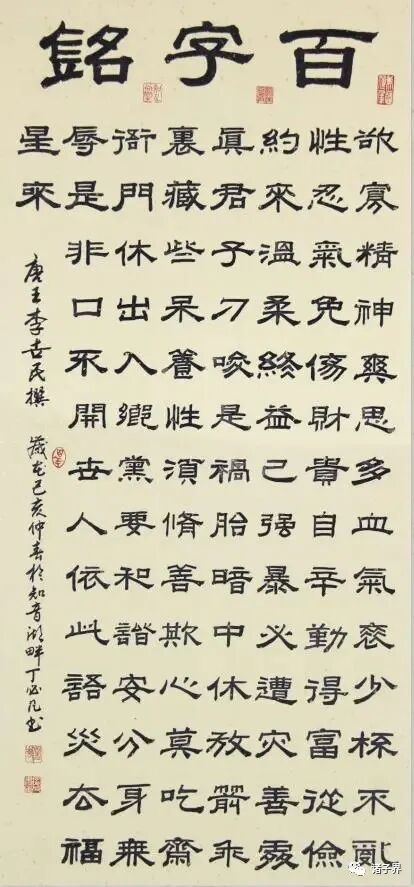 百字銘
欲寡精神爽思多血氣衰少杯不亂
性忍氣免傷財貴自辛勤得富從儉
約來溫柔終益己强暴必遭灾善處
眞君子刁唆是禍胎暗中休放箭乖
裏藏些呆養性須脩善欺心莫吃齋
衙門休出入鄉黨要和諧安分身無
辱是非口不開世人依此語災去福
星來
唐王李世民撰 歲在己亥仲春於知音湖畔丁必凡書
诸子界